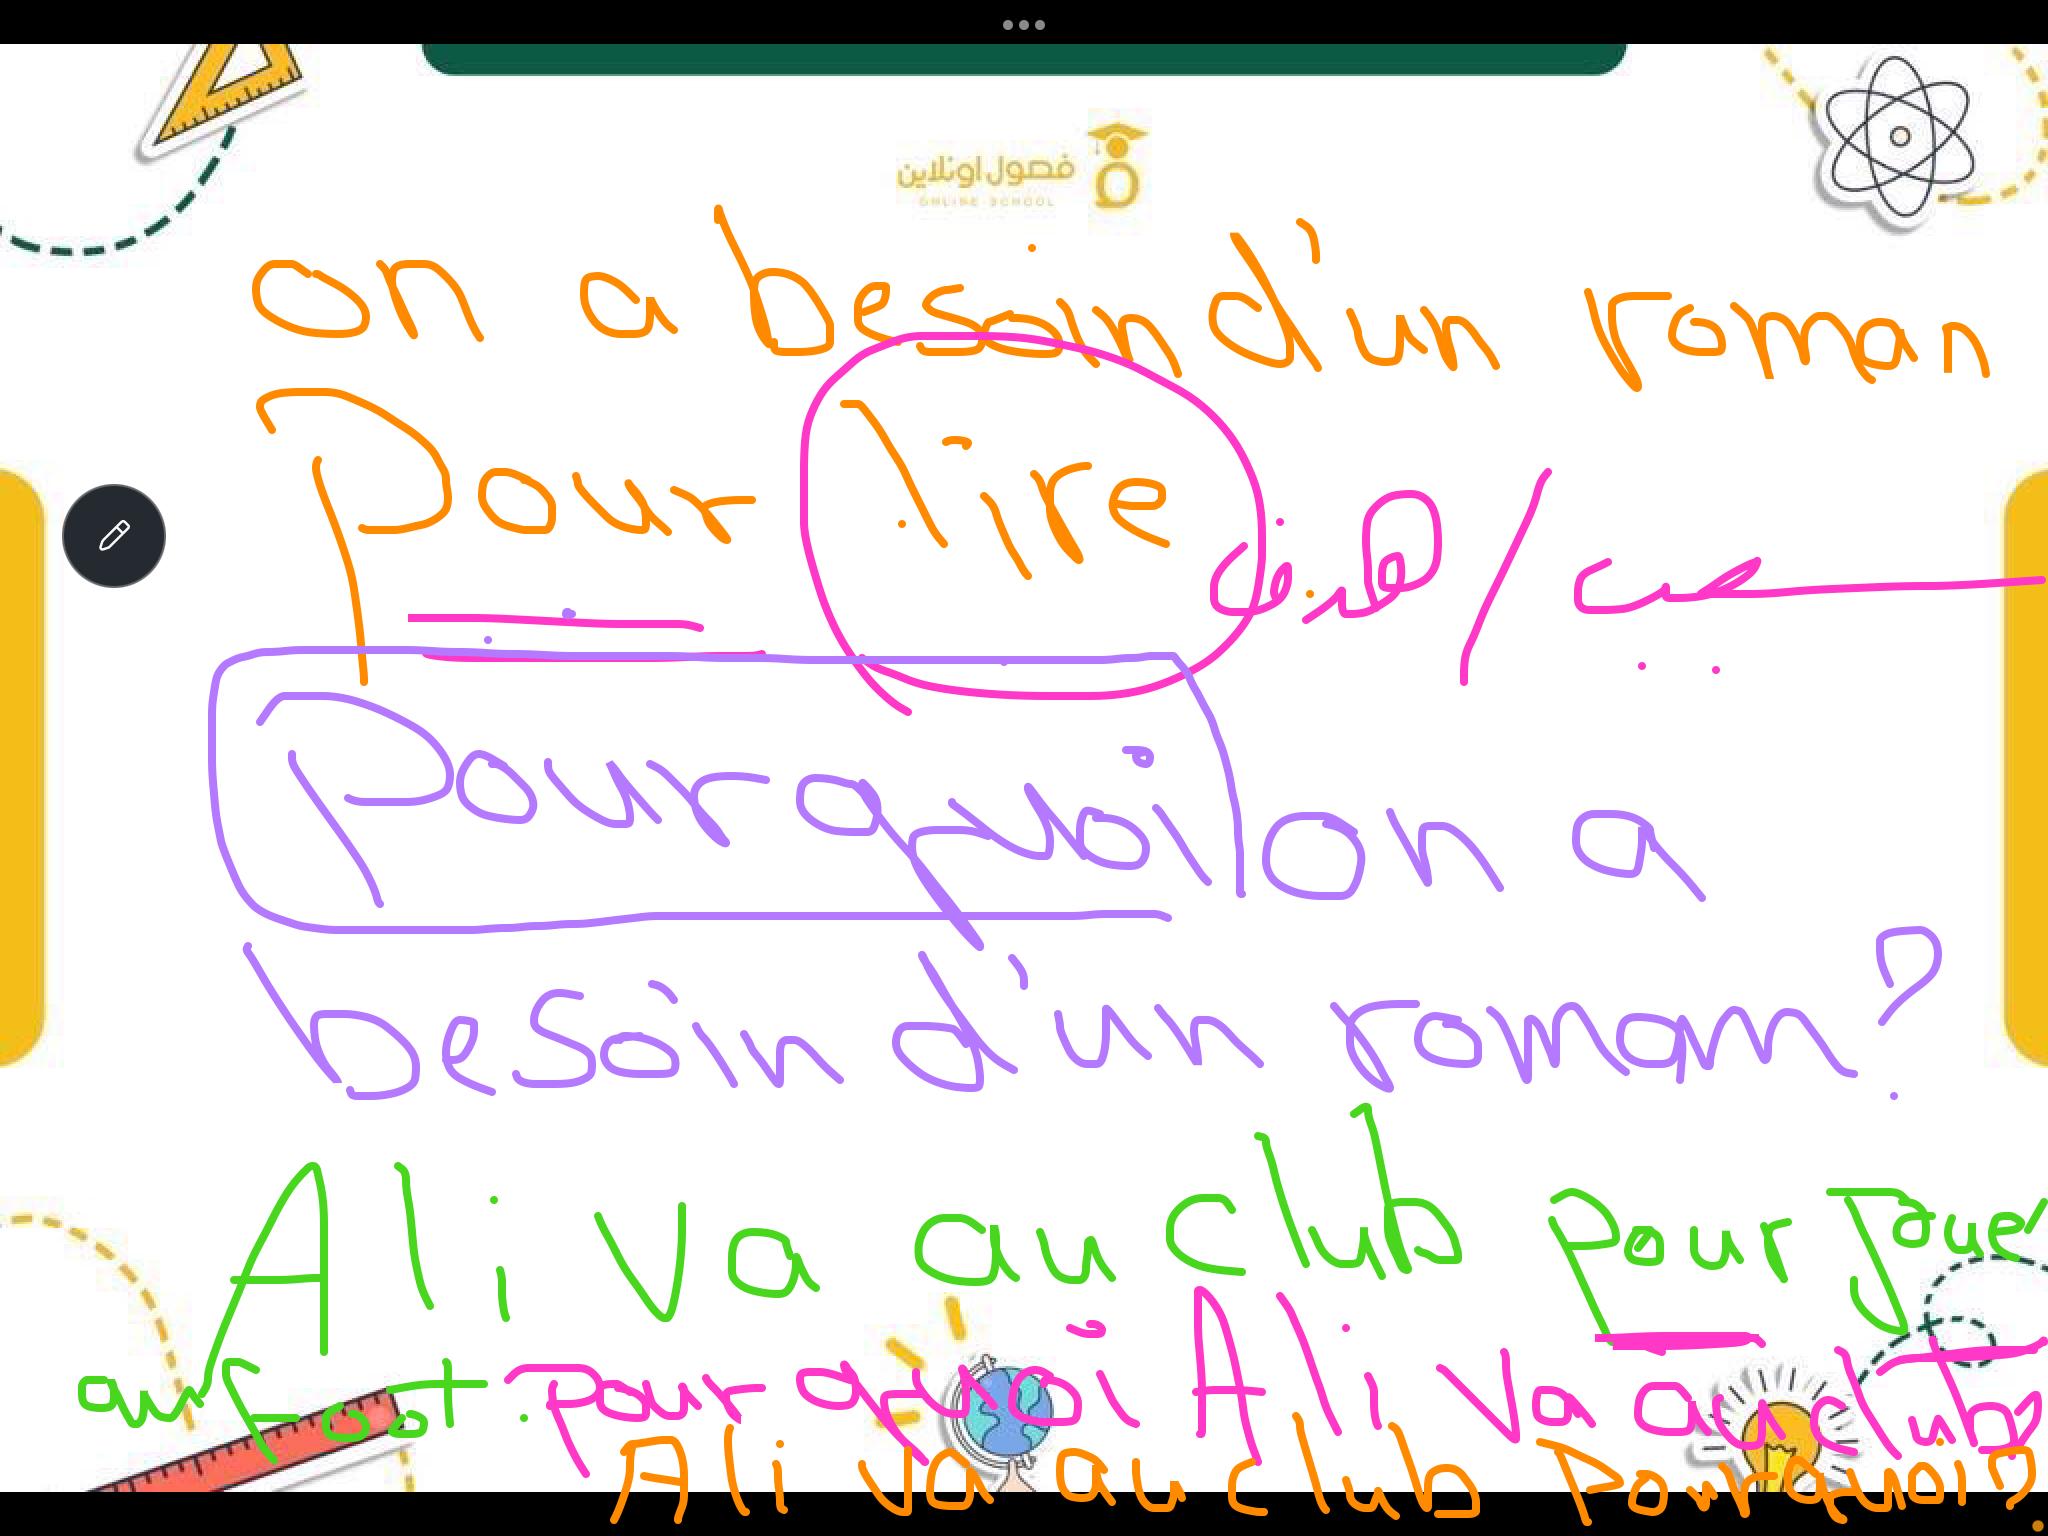 فصول اونلاين
ONLINE SCHOOL
on a besoin d'un roman
Pour lire
غرض / سبب
Pourquoi on a
besoin d'un roman?
Ali va au club pour jouer
au foot. Pourquoi Ali va au club?
Ali va au club Pourquoi?